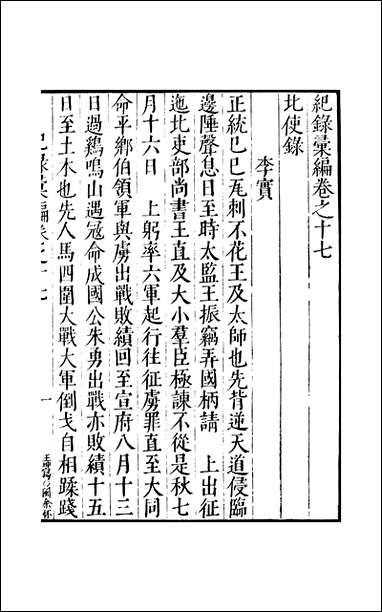 紀錄彙編卷之十七
北使錄
李實
正統己巳瓦剌不花王及太師也先背逆天道侵臨
邊陲聲息日至時太監王振竊弄國柄請　上出征
迤北吏部尚書王直及大小羣臣極諫不從是秋七
月十六日　上躬率六軍起行往征虜罪直至大同
命平鄉伯領軍與虜出戰敗績回至宣府八月十三
日過鷄鳴山遇冦命成國公朱勇出戰亦敗績十五
日至土木也先人馬四圍大戰大軍倒戈自相蹂踐